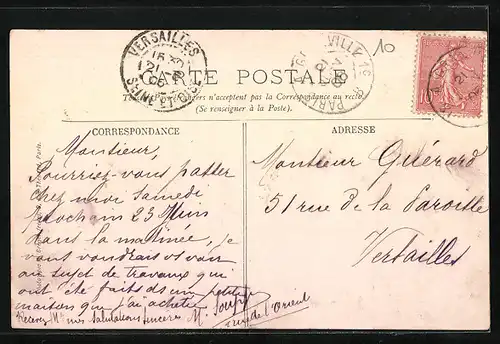 10
VERSAILLES
21
SEINE-ET-OISE
PARIS
10
CARTE POSTALE
Tous les pays étrangers n'acceptent pas la Correspondance au recto.
(Se renseigner à la Poste).
CORRESPONDANCE
Monsieur,
Pourriez-vous passer
chez moi Samedi
prochain 23
dans la matinée, je
vous voudrais
au sujet de travaux qui
ont été faits ds un petite
maison que j'ai
Recevez Mr mes Salutations Sincères
M.
rue de l'Orient
ADRESSE
Monsieur Guérard
51 rue de la Paroisse
Versailles